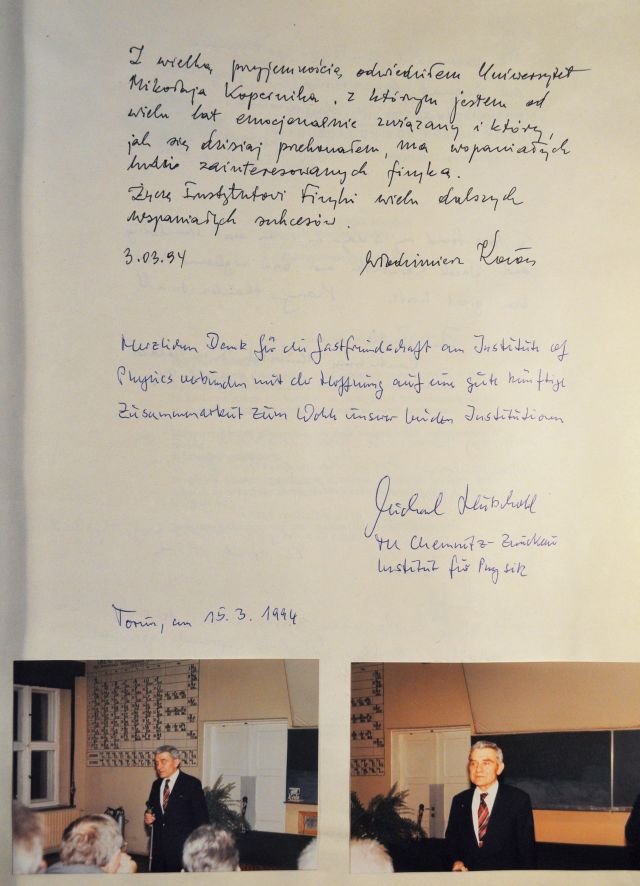 Z wielką przyjemnością odwiedziłem Uniwersytet
Mikołaja Kopernika, z którym jestem od
wielu lat emocjonalnie związany i który,
jak się dzisiaj przekonałem, ma wspaniałych
ludzi zainteresowanych fizyką.
Życzę Instytutowi Fizyki wielu dalszych
wspaniałych sukcesów.
3.03.94 Włodzimierz
Herzlichen Dank für die Gastfreundschaft am Institute of
Physics verbunden mit der Hoffnung auf eine gute künftige
Zusammenarbeit zum Wohle unserer beiden Institutionen
Michael
TU Chemnitz-Zwickau
Institut für Physik
Toruń, am 15.3.1994